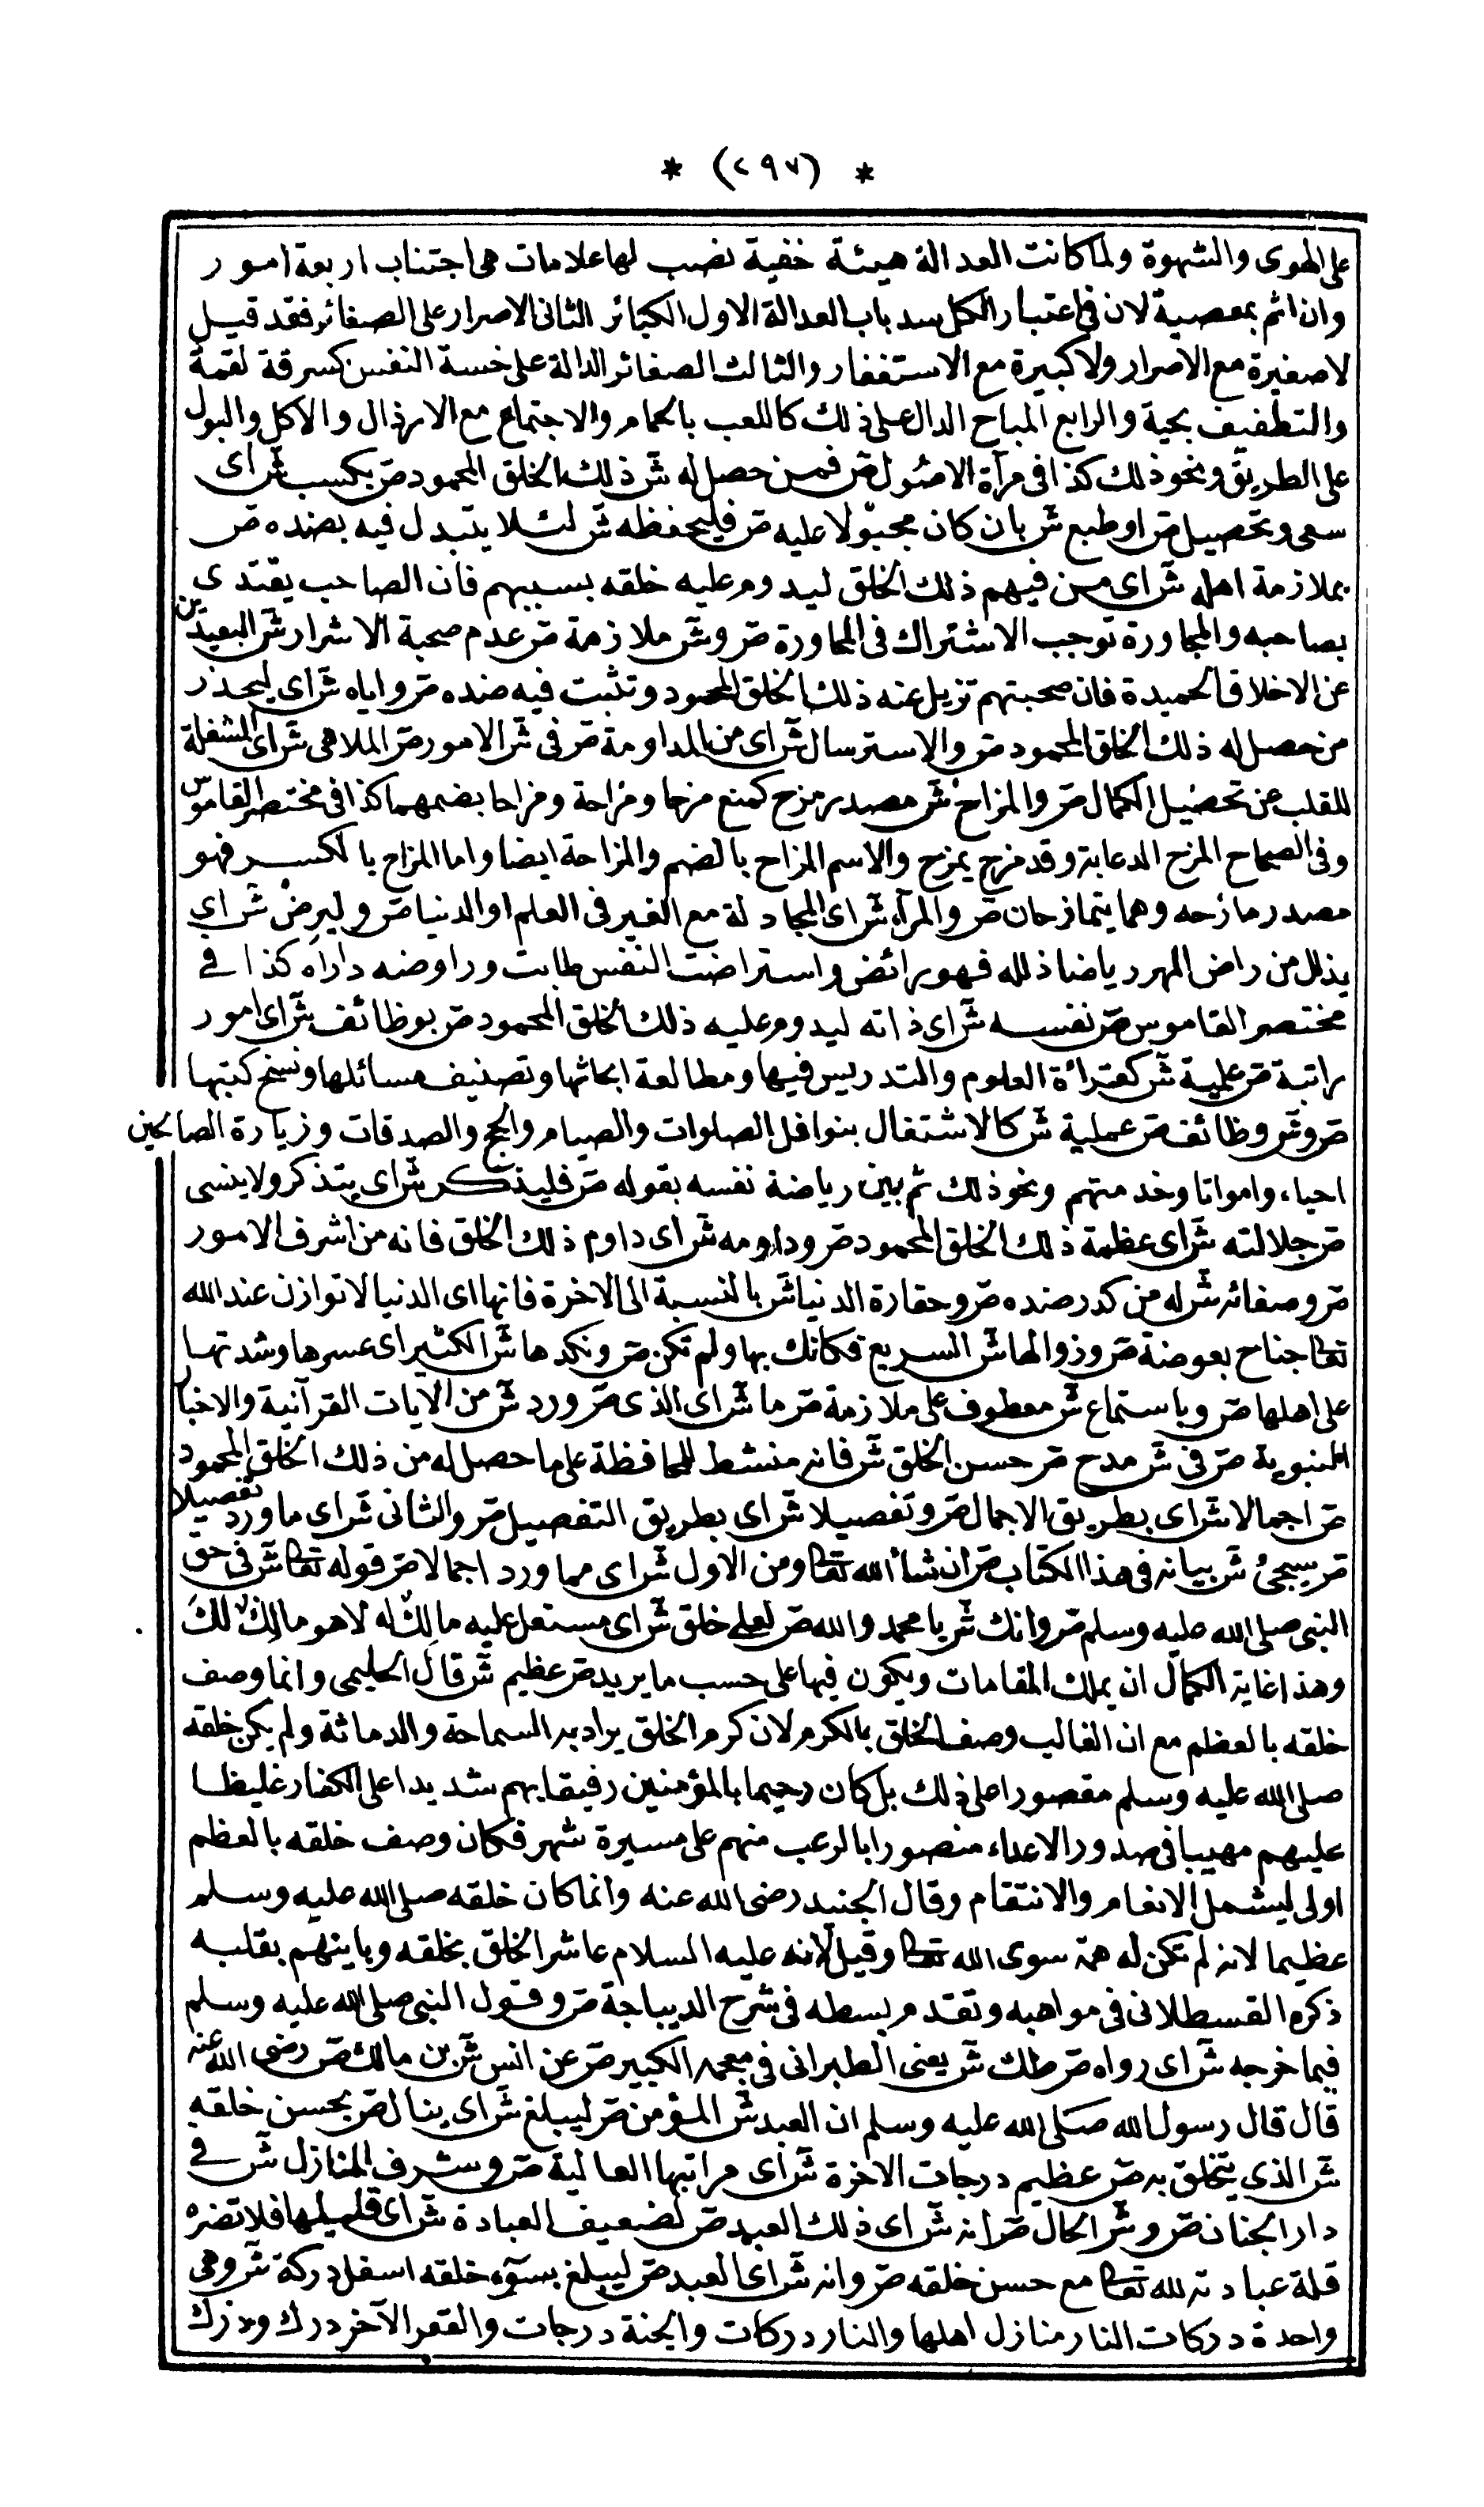 * (٢٩٧) *
على الهوى والشهوة ولما كانت العدالة هيئة خفية نصب لها علامات هى اجتناب اربعة امور
وان اثم بمعصية لان فى اعتبار الكل سد باب العدالة الاول الكبائر الثانى الاصرار على الصغائر فقد قيل
لا صغيرة مع الاصرار ولا كبيرة مع الاستغفار والثالث الصغائر الدالة على خسة النفس كسرقة لقمة
والتطفيف بحبة والرابع المباح الدال على ذلك كاللعب بالحمام والاجتماع مع الارذال والاكل والبول
على الطريق ونحو ذلك كذا فى مرآة الاصول ص فمن حصل له ش ذلك الخلق المحمود ص بكسب ش اى
سعى وتحصيل ص او طبع ش بان كان مجبولا عليه ص فليحفظه ش لئلا يتبدل فيه بضده ص
بملازمة اهله ش اى من فيهم ذلك الخلق ليدوم عليه خلقه بسببهم فان الصاحب يقتدى
بصاحبه والمجاورة توجب الاشتراك فى المحاورة ص و ش ملازمة ص عدم صحبة الاشرار ش البعيدين
عن الاخلاق الحميدة فان صحبتهم تزيل عنه ذلك الخلق المحمود وتثبت فيه ضده ص واياه ش اى ليحذر
من حصل له ذلك الخلق المحمود ص والاسترسال ش اى من المداومة ص فى ش الامور ص الملاهى ش اى المشغلة
للقلب عن تحصيل الكمال ص والمزاح ش مصدر مزح كمنع مزحا ومزاحة ومزاحا بضمهما كذا فى مختصر القاموس
وفى الصحاح المزح الدعابة وقد مزح يمزح والاسم المزاح بالضم والمزاحة ايضا واما المزاح بالكسر فهو
مصدر مازحه وهما يتمازحان ص والمراء ش اى المجادلة مع الغير فى العلم او الدنيا ص وليرض ش اى
يذلل من راض المهر رياضا ذلله فهو رائض واستراضت النفس طابت وراوضه داراه كذا فى
مختصر القاموس ص نفسه ش اى ذاته ليدوم عليه ذلك الخلق المحمود ص بوظائف ش اى امور
راتبة ص علمية ش كقراءة العلوم والتدريس فيها ومطالعة ابحاثها وتصنيف مسائلها ونسخ كتبها
ص و ش وظائف ص عملية ش كالاشتغال بنوافل الصلوات والصيام والحج والصدقات وزيارة الصالحين
احياء وامواتا وخدمتهم ونحو ذلك ثم بين رياضة نفسه بقوله ص فليذكر ش اى يتذكر ولا ينسى
ص جلالته ش اى عظمة ذلك الخلق المحمود ص ودوامه ش اى داوم ذلك الخلق فانه من اشرف الامور
ص وصفائه ش له من كدر ضده ص وحقارة الدنيا ش بالنسبة الى الاخرة فانها اى الدنيا لا توازن عند الله
تعالى جناح بعوضة ص وزوالها ش السريع فكانك بها ولم تكن ص ونكدها ش الكثير اى عسرها وشدتها
على اهلها ص وباستماع ش معطوف على ملازمة ص ما ش اى الذى ص ورد ش من الايات القرآنية والاخبار
النبوية ص فى ش مدح ص حسن الخلق ش فانه منشط للمحافظة على ما حصل له من ذلك الخلق المحمود
ص اجمالا ش اى بطريق الاجمال ص وتفصيلا ش اى بطريق التفصيل ص والثانى ش اى ما ورد تفصيلا
ص سيجئ ش بيانه فى هذا الكتاب ص ان شاء الله تعالى ومن الاول ش اى مما ورد اجمالا ص قوله تعالى ش فى حق
النبى صلى الله عليه وسلم ص وانك ش يا محمد والله ص لعلى خلق ش اى مستعل عليه مالك له لا هو مالك لك
وهذا غاية الكمال ان يملك المقامات ويكون فيها على حسب ما يريد ص عظيم ش قال الحليمى وانما وصف
خلقه بالعظم مع ان الغالب وصف الخلق بالكرم لان كرم الخلق يراد به السماحة والدماثة ولم يكن خلقه
صلى الله عليه وسلم مقصورا على ذلك بل كان رحيما بالمؤمنين رفيقا بهم شديدا على الكفار غليظا
عليهم مهيبا فى صدور الاعداء منصورا بالرعب منهم على مسيرة شهر فكان وصف خلقه بالعظم
اولى ليشمل الانعام والانتقام وقال الجنيد رضى الله عنه وانما كان خلقه صلى الله عليه وسلم
عظيما لانه لم تكن له همة سوى الله تعالى وقيل لانه عليه السلام عاشر الخلق بخلقه وباينهم بقلبه
ذكره القسطلانى فى مواهبه وتقدم بسطه فى شرح الديباجة ص وقول النبى صلى الله عليه وسلم
فيما خرجه ش اى رواه ص طك ش يعنى الطبرانى فى معجمه الكبير ص عن انس ش بن مالك ص رضى الله عنه
قال قال رسول الله صلى الله عليه وسلم ان العبد ش المؤمن ص ليبلغ ش اى ينال ص بحسن خلقه
ش الذى يتخلق به ص عظيم درجات الاخرة ش اى مراتبها العالية ص وشرف المنازل ش فى
دار الجنان ص و ش الحال ص انه ش اى ذلك العبد ص لضعيف العبادة ش اى قليلها فلا تضره
قلة عبادته لله تعالى مع حسن خلقه ص وانه ش اى العبد ص ليبلغ بسوء خلقه اسفل دركة ش وهى
واحدة دركات النار منازل اهلها والنار دركات والجنة درجات والقعر الآخر درك ودرك